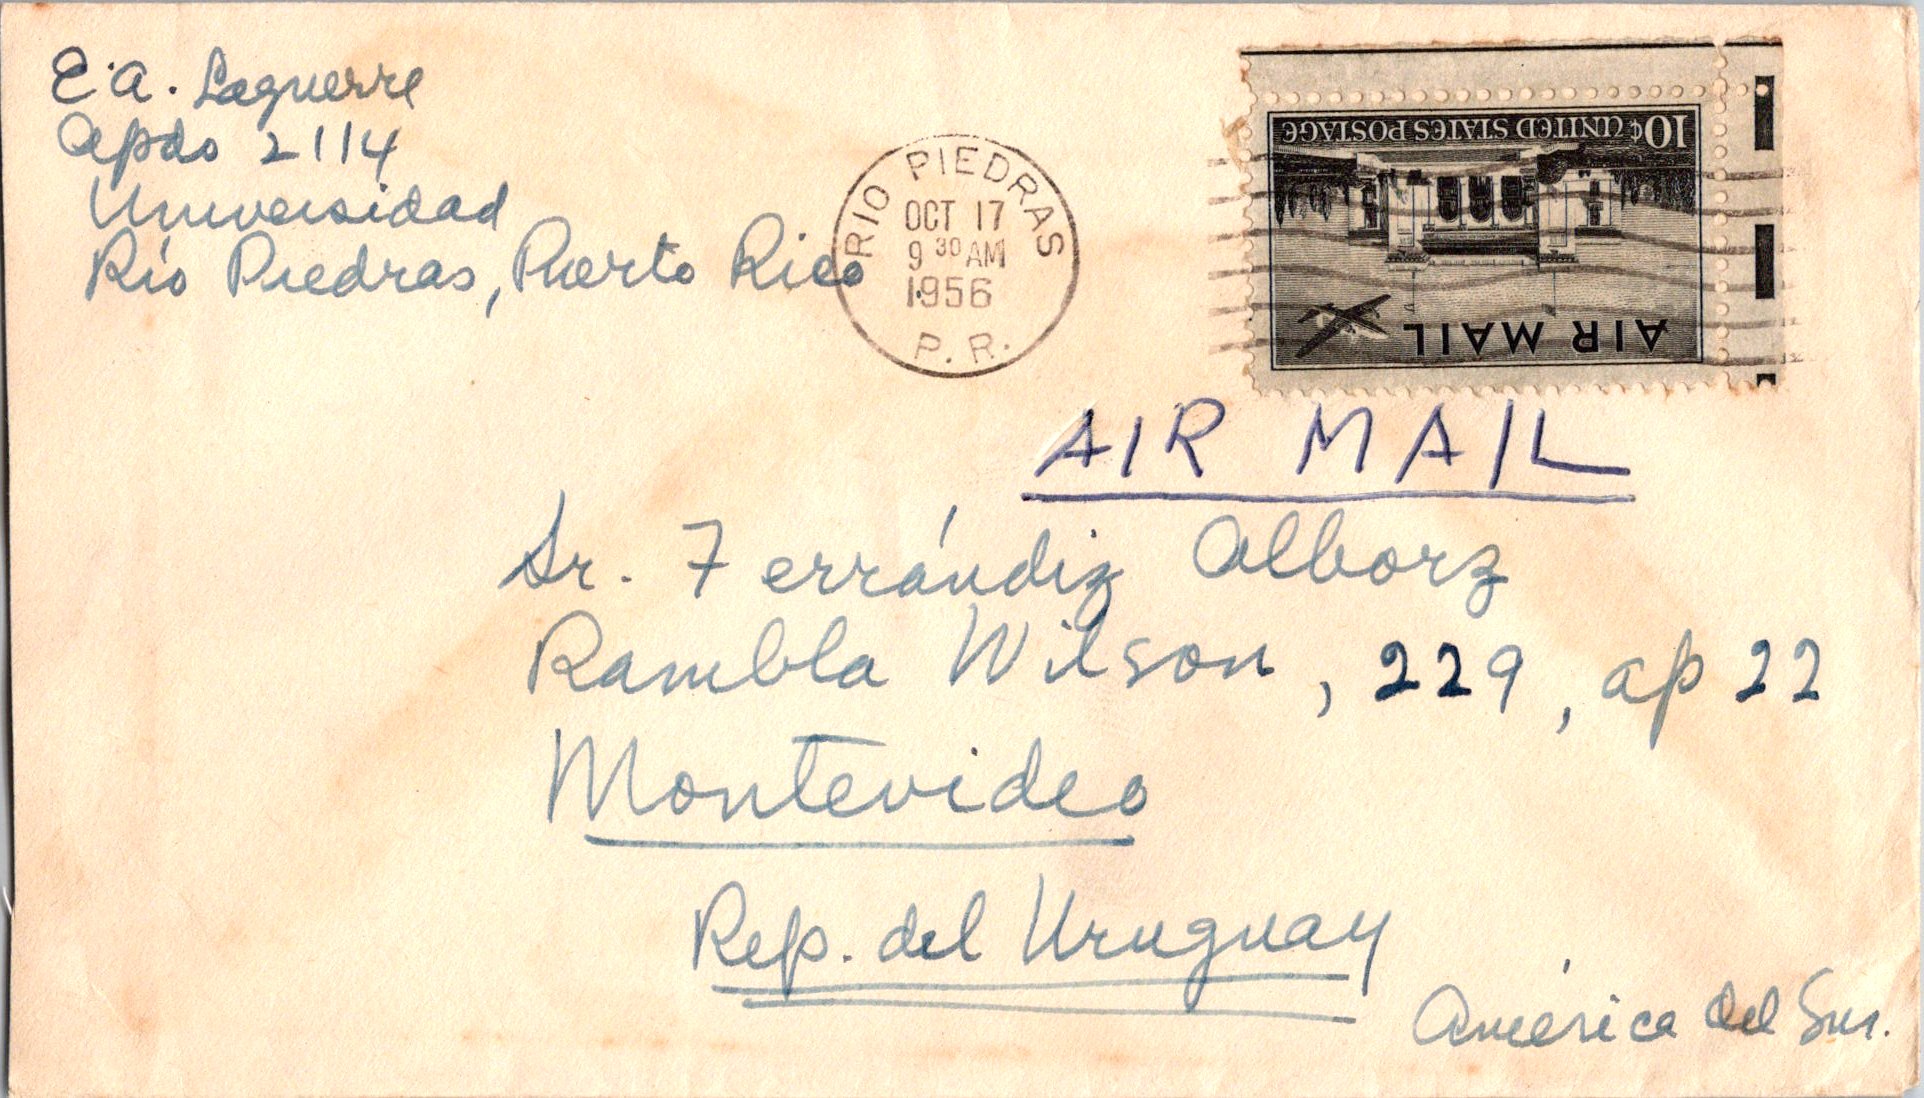 E.A. Laguerre
Apdo 2114
Universidad
Río Piedras, Puerto Rico
RIO PIEDRAS
OCT 17
9 30 AM
1956
P. R.
10¢ UNITED STATES POSTAGE
AIR MAIL
AIR MAIL
Sr. Ferrándiz Alborz
Rambla Wilson, 229, ap 22
Montevideo
Rep. del Uruguay
América del Sur.